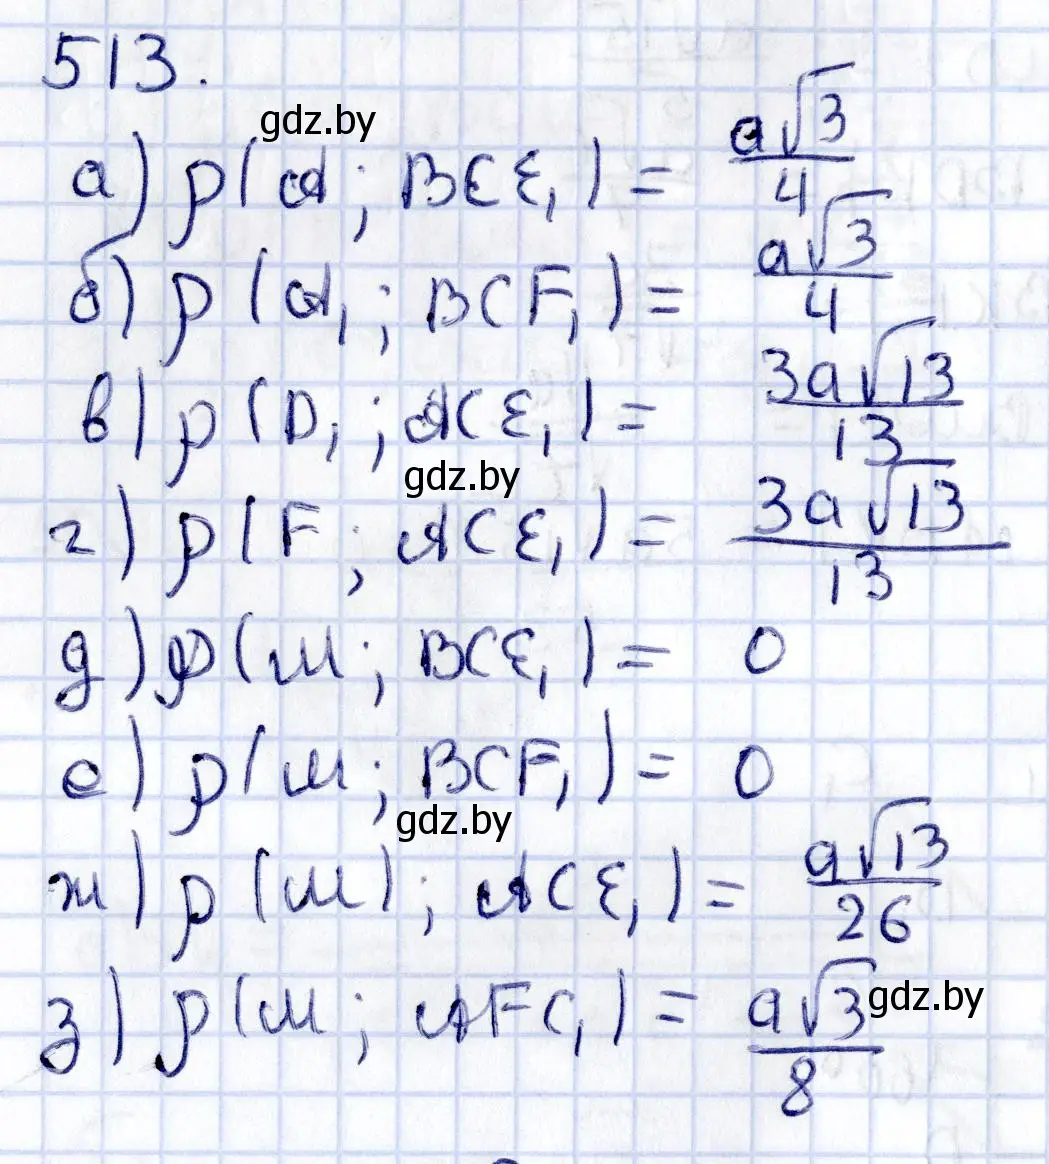 513.
gdz.by
а) ρ(A; BCE₁) = a√3/4
б) ρ(A₁; BCF₁) = a√3/4
в) ρ(D₁; ACE₁) = 3a√13/13
gdz.by
г) ρ(F; ACE₁) = 3a√13/13
д) ρ(M; BCE₁) = 0
е) ρ(M; BCF₁) = 0
gdz.by
ж) ρ(M); ACE₁) = a√13/26
з) ρ(M; AFC₁) = a√3/8
gdz.by